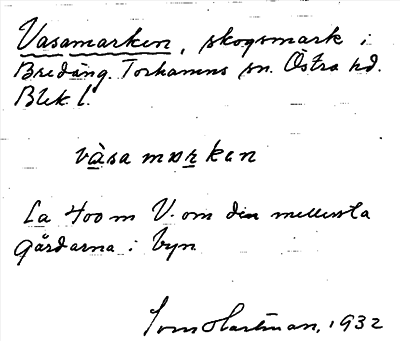 Vasamarken, skogsmark i
Bredäng. Torhamns sn. Östra hd.
Blek l.
vàsa marken
Ca 400 m V. om den mellersta
gårdarna i byn
Hartman, 1932